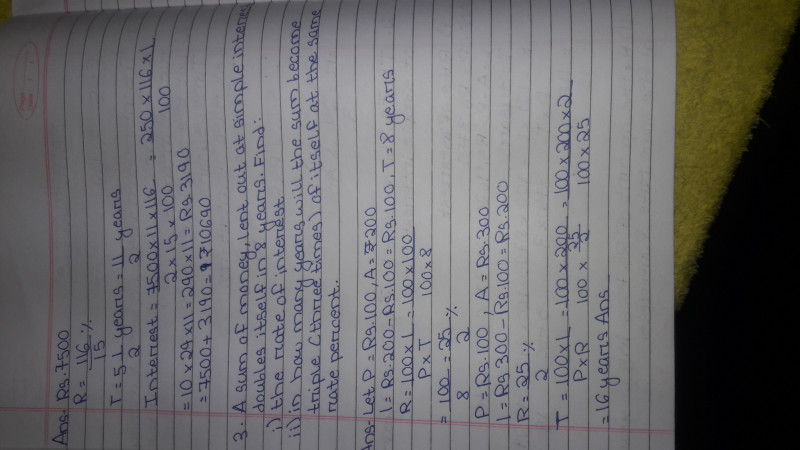 Ans- Rs.7500
R = 116 %
15
T = 5 1 years = 11 years
2 2
Interest = 7500 x 11 x 116 = 250 x 116 x 1
2 x 15 x 100 100
= 10 x 29 x 11 = 290 x 11 = Rs. 3190
= 7500 + 3190 =
3. A sum of money, lent out at simple interes
doubles itself in 8 years. Find:
i) the rate of interest
ii) in how many years will the sum become
triple (three times) of itself at the same
rate percent.
Ans- Let P = Rs.100, A = ₹200
I = Rs.200 - Rs.100 = Rs.100, T = 8 years
R = 100 x I = 100 x 100
P x T 100 x 8
= 100 = 25 %
8 2
P = Rs.100, A = Rs.300
I = Rs.300 - Rs.100 = Rs.200
R = 25 %
2
T = 100 x I = 100 x 200 = 100 x 200 x 2
P x R 100 x 25/2 100 x 25
= 16 years Ans